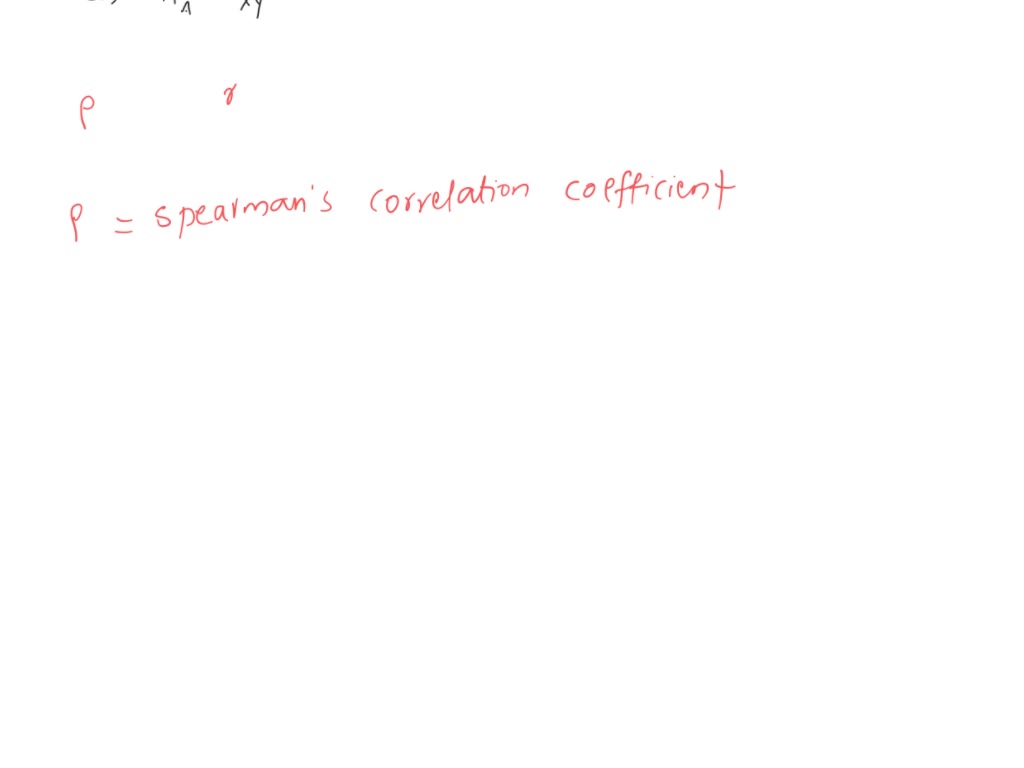 ρ r
ρ = spearman's correlation coefficient